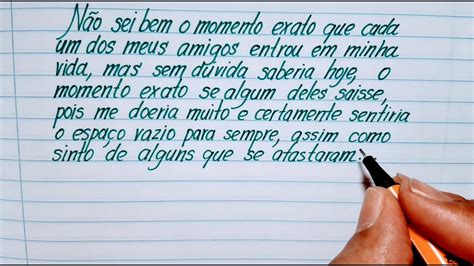 Não sei bem o momento exato que cada
um dos meus amigos entrou em minha
vida, mas sem dúvida saberia hoje, o
momento exato se algum deles saisse,
pois me doeria muito e certamente sentiria
o espaço vazio para sempre, assim como
sinto de alguns que se afastaram.